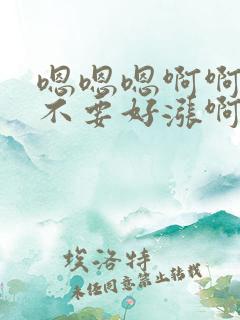 嗯嗯嗯啊啊
不要好漲啊
埃洛特
未经同意禁止转载